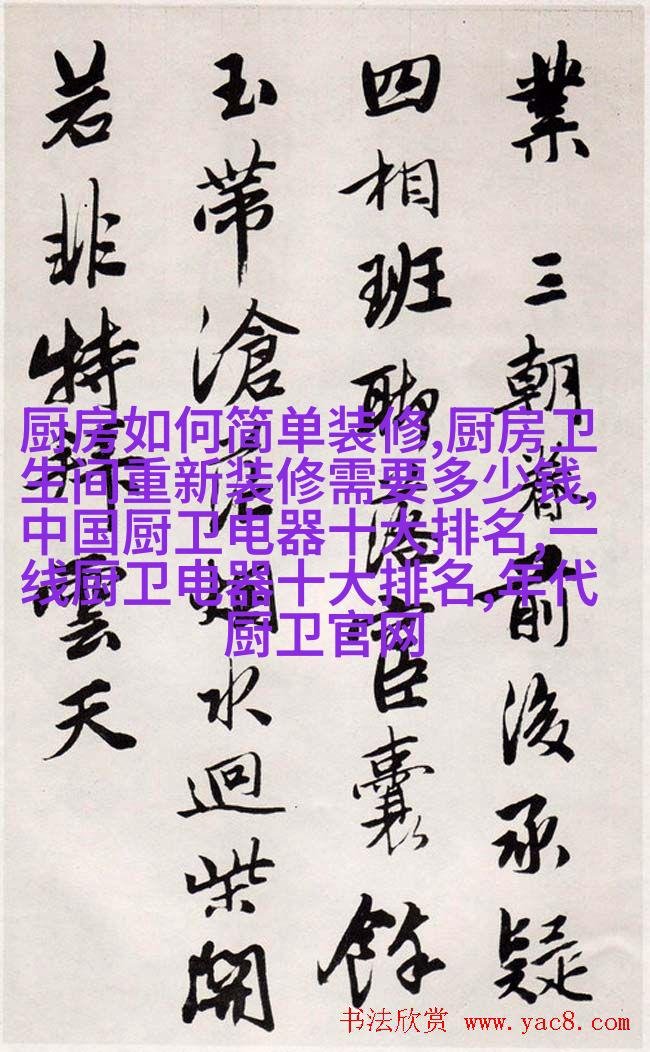 業 三朝眷前後承疑
四相班臣囊餘
玉帶滄水迴柴開
若非特雲天
厨房如何简单装修,厨房卫
生间重新装修需要多少钱,
中国厨卫电器十大排名,一
线厨卫电器十大排名,年代
厨卫官网
书法欣赏 www.yac8.com